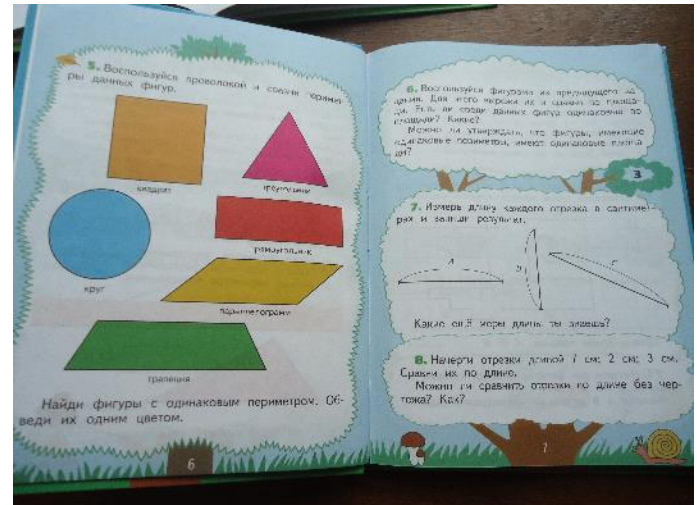 5. Воспользуйся проволокой и сравни периметры
ры данных фигур.
квадрат
треугольник
прямоугольник
круг
параллелограмм
трапеция
Найди фигуры с одинаковым периметром. Об-
веди их одним цветом.
6
6. Воспользуйся фигурами из предыдущего за-
дания. Для этого вырежи их и сравни по площа-
ди. Есть ли среди данных фигур одинаковые по
площади? Какие?
Можно ли утверждать, что фигуры, имеющие
одинаковые периметры, имеют одинаковые площа-
ди?
3
7. Измерь длину каждого отрезка в сантимет-
рах и запиши результат.
A
B
C
Какие ещё меры длины ты знаешь?
8. Начерти отрезки длиной 7 см; 2 см; 3 см.
Сравни их по длине.
Можно ли сравнить отрезки по длине без чер-
тежа? Как?
7